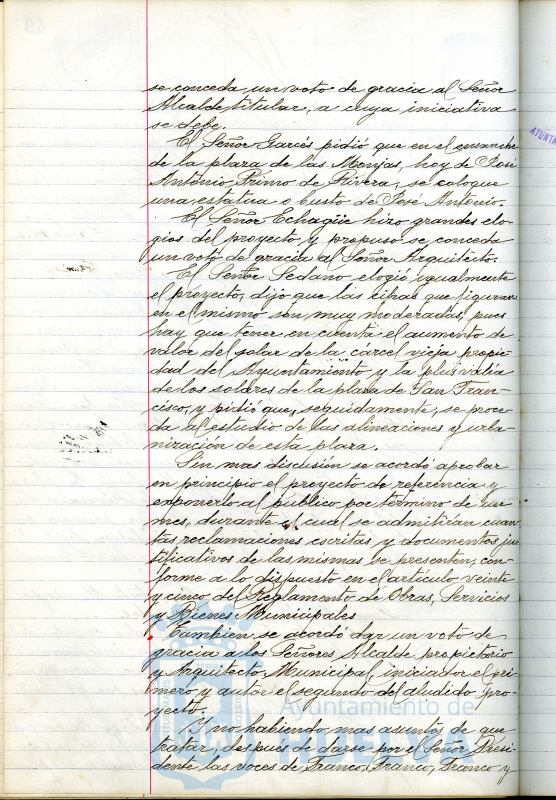 se conceda un voto de gracia al Señor
Alcalde titular, a cuya iniciativa
se debe.
El Señor Garcés pidió que en el ensanche
de la plaza de las Monjas, hoy de José
Antonio Primo de Rivera, se coloque
una estatua o busto de José Antonio.
El Señor Echagüe hizo grandes elo-
gios del proyecto y propuso se conceda
un voto de gracia al Señor Arquitecto.
El Señor Sedano elogió igualmente
el proyecto, dijo que las cifras que figuran
en el mismo son muy moderadas, pues
hay que tener en cuenta el aumento de
valor del solar de la cárcel vieja propie-
dad del Ayuntamiento y la plus valía
de los solares de la plaza de San Fran-
cisco, y pidió que, seguidamente, se proce-
da al estudio de las alineaciones y urba-
nización de esta plaza.
Sin mas discusión se acordó aprobar
en principio el proyecto de referencia y
exponerlo al público por término de un
mes, durante el cual se admitirán cuan-
tas reclamaciones escritas y documentos jus-
tificativos de las mismas se presenten, con-
forme a lo dispuesto en el artículo veinte
y cinco del Reglamento de Obras, Servicios
y Bienes Municipales
Tambien se acordó dar un voto de
gracia a los Señores Alcalde propietario
y Arquitecto Municipal, iniciador el pri-
mero y autor el segundo del aludido pro-
yecto.
Y no habiendo mas asuntos de que
tratar, después de darse por el Señor Presi-
dente las voces de Franco, Franco, Franco y
AYUNTA
Ayuntamiento de
HUELVA